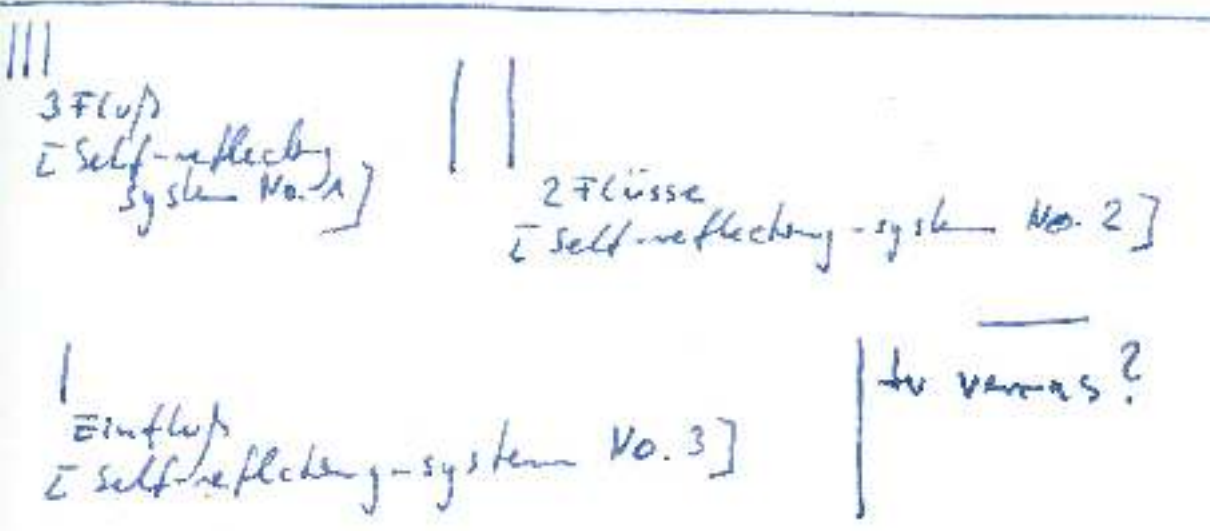 3 Fluß
[Self-reflecting
system No. 1]
2 Flüsse
[Self-reflecting-system No. 2]
Einfluß
[Self-reflecting-system No. 3]
?